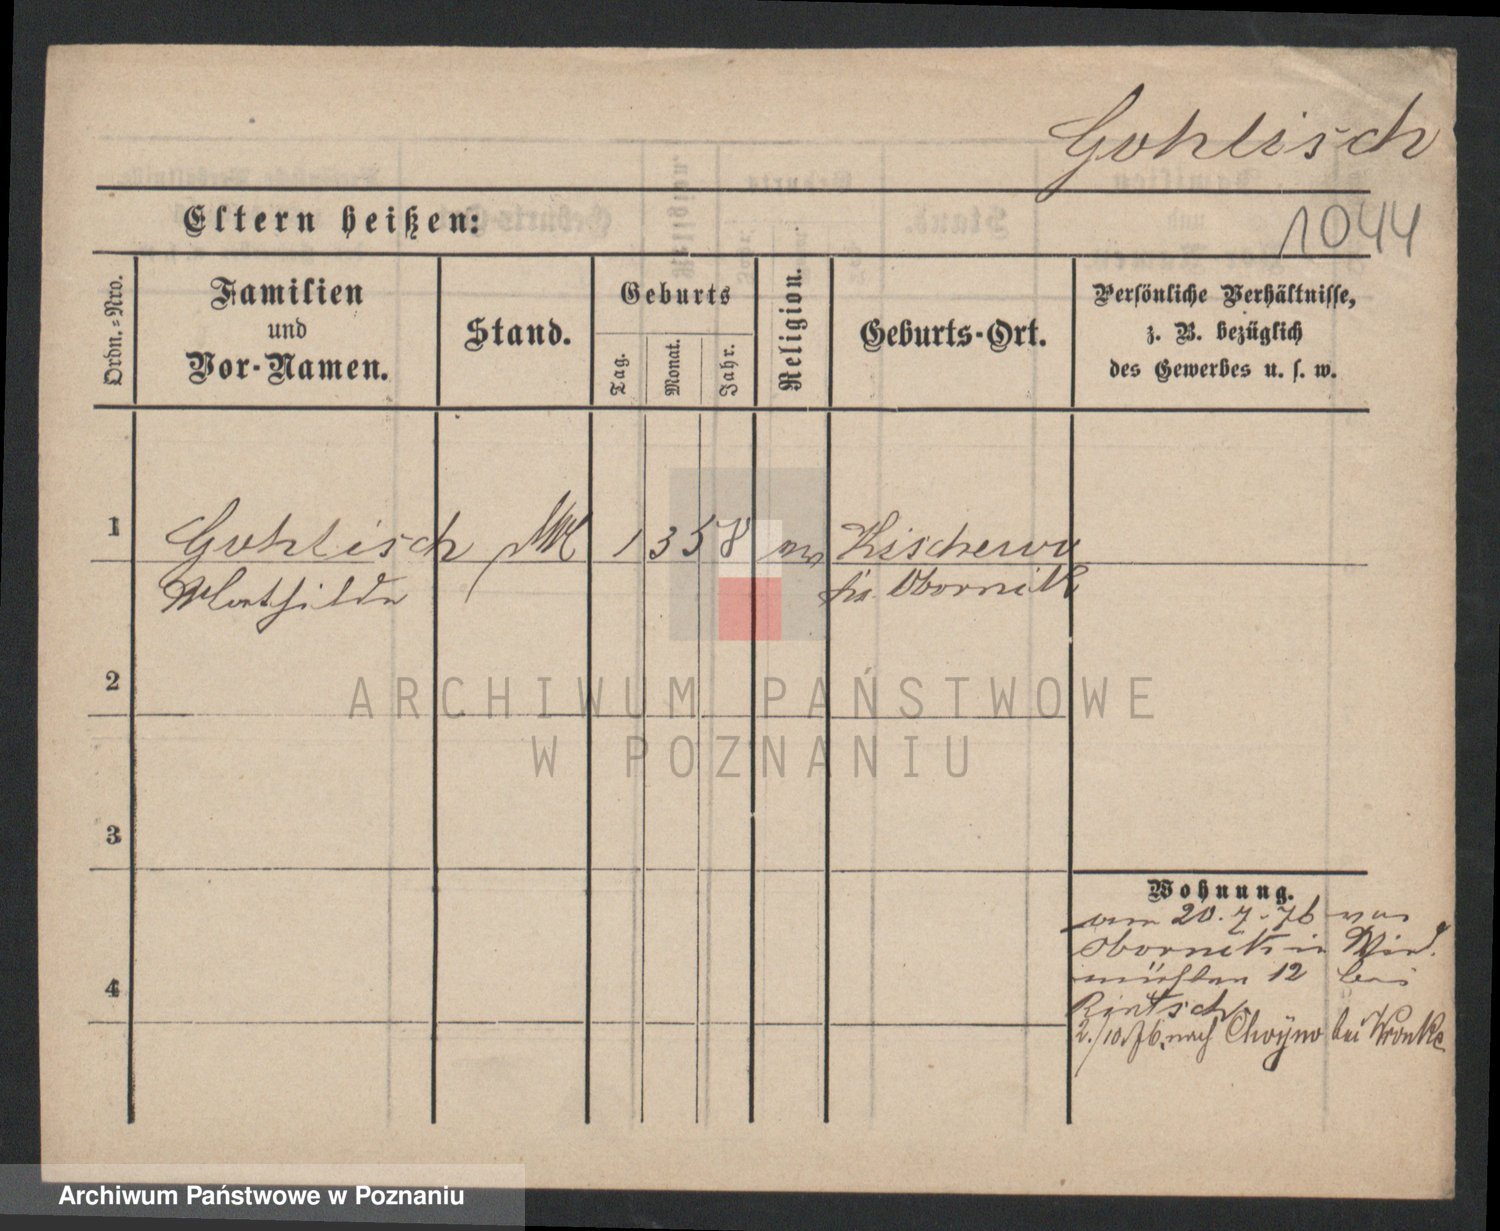 Gohlisch
1044
Eltern heißen:
Ordn.-Nro.
Familien
und
Vor-Namen.
Stand.
Geburts
Tag.
Monat.
Jahr.
Religion.
Geburts-Ort.
Persönliche Verhältnisse,
z. B. bezüglich
des Gewerbes u. s. w.
1
Gohlisch
1 3 58
Kischewo
Mathilde
Kr. Obornik
2
ARCHIWUM PAŃSTWOWE
W POZNANIU
3
Wohnung.
am 20.7.76 von
Obornik in Wind.
mühlen 12 bei
Rintsch.
4
2./10.76. nach Choÿno bei Wronke
Archiwum Państwowe w Poznaniu